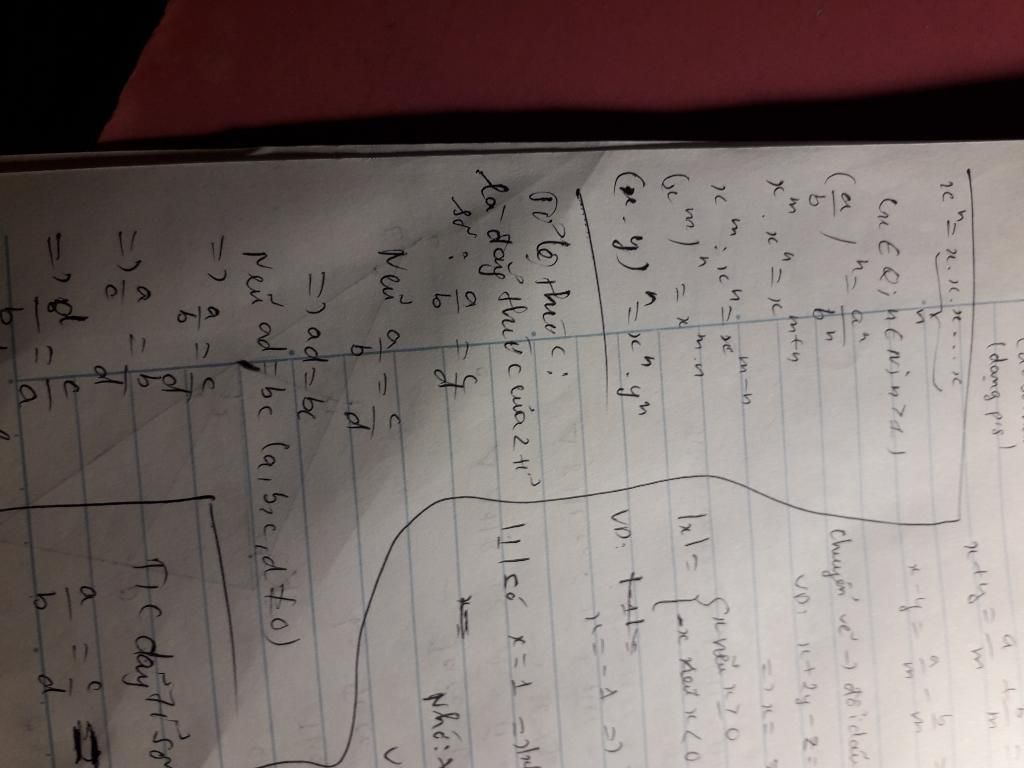 (dạng p/s)
xⁿ = x.x.x....x
n
(x ∈ Q; n ∈ N; n > 1)
(a/b)ⁿ = aⁿ/bⁿ
xᵐ . xⁿ = xᵐ⁺ⁿ
xᵐ : xⁿ = xᵐ⁻ⁿ
(xᵐ)ⁿ = xᵐ·ⁿ
(x.y)ⁿ = xⁿ.yⁿ
Tỉ lệ thức:
là đẳng thức của 2 tỉ
số: a/b = c/d
Nếu a/b = c/d
=> ad = bc
Nếu ad = bc (a,b,c,d ≠ 0)
=> a/b = c/d
=> a/c = b/d
=> d/b = c/a
x + y = a/m + b/m =
x - y = a/m - b/m =
chuyển vế -> đổi dấu
VD: x + 2y - z =
=> x =
|x| = { x nếu x ≥ 0
-x nếu x < 0
VD:
x = -1 =>
|1| có x = 1 =>
Nhớ:
T/c dãy tỉ số
a/b = c/d =